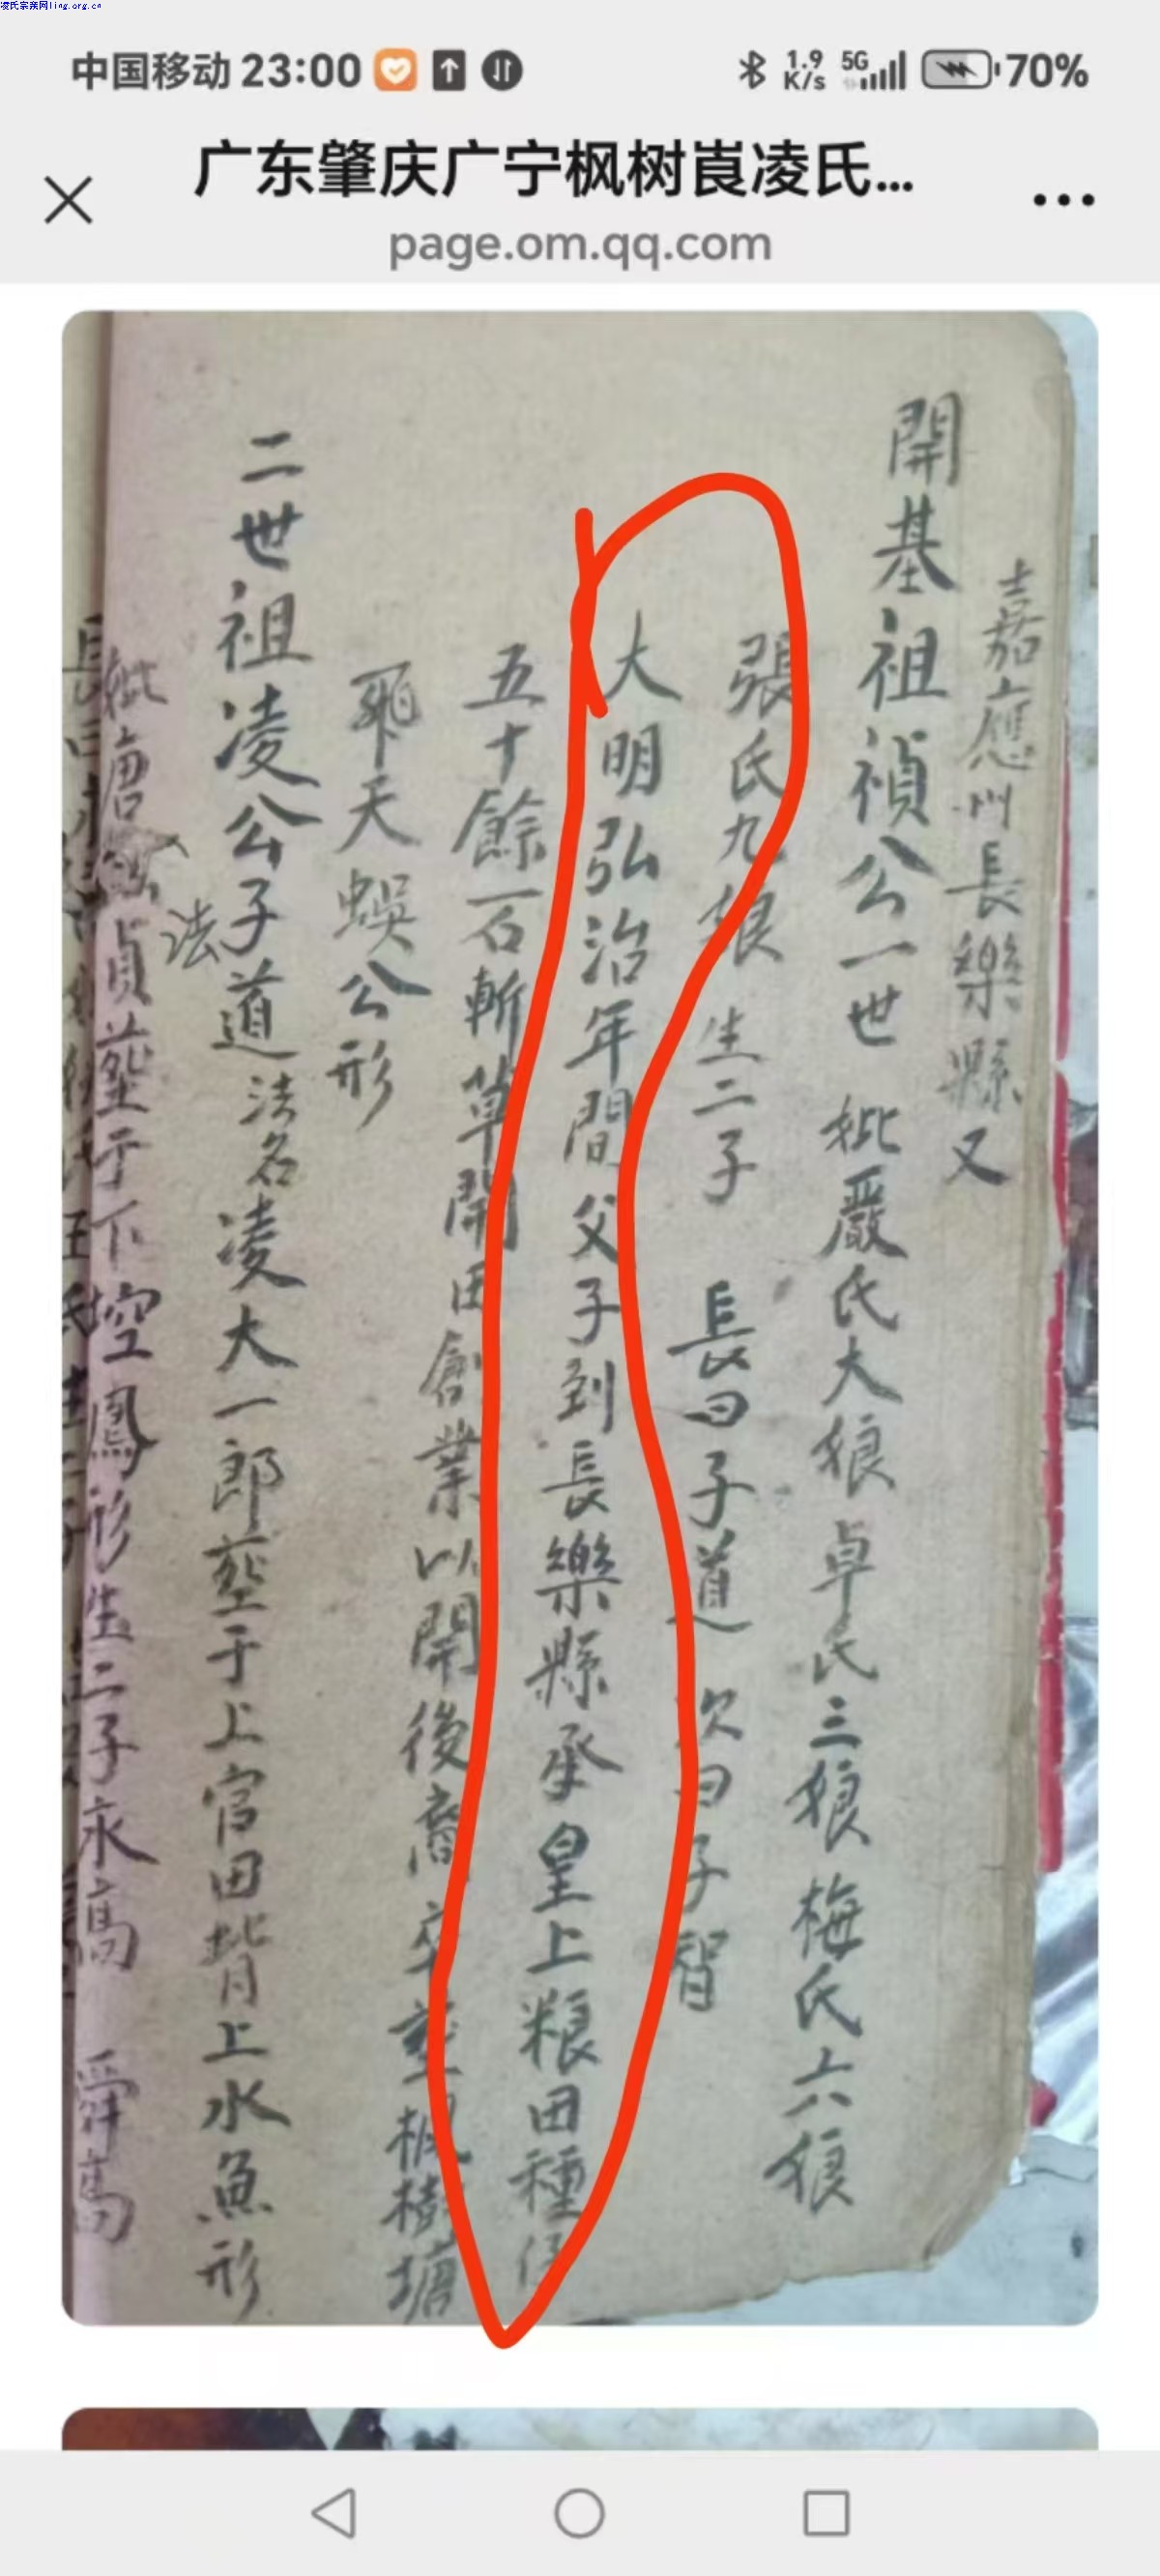 凌氏宗亲网ling.org.cn
中国移动 23:00 1.9 K/s 5G 70%
广东肇庆广宁枫树崀凌氏...
page.om.qq.com
嘉應州長樂縣又
開基祖禎公一世 妣嚴氏大狼 卓氏三狼 梅氏六狼
張氏九狼 生二子 長曰子道 次曰子智
大明弘治年間父子到長樂縣承皇上粮田種
五十餘石斬草開田創業以開後裔卒塟楓樹塘
天蜈公形
二世祖凌公子道法名凌大一郎塟于上官田背上水魚形
法
妣唐氏貞塟于下空鳳形生二子永高 舜高